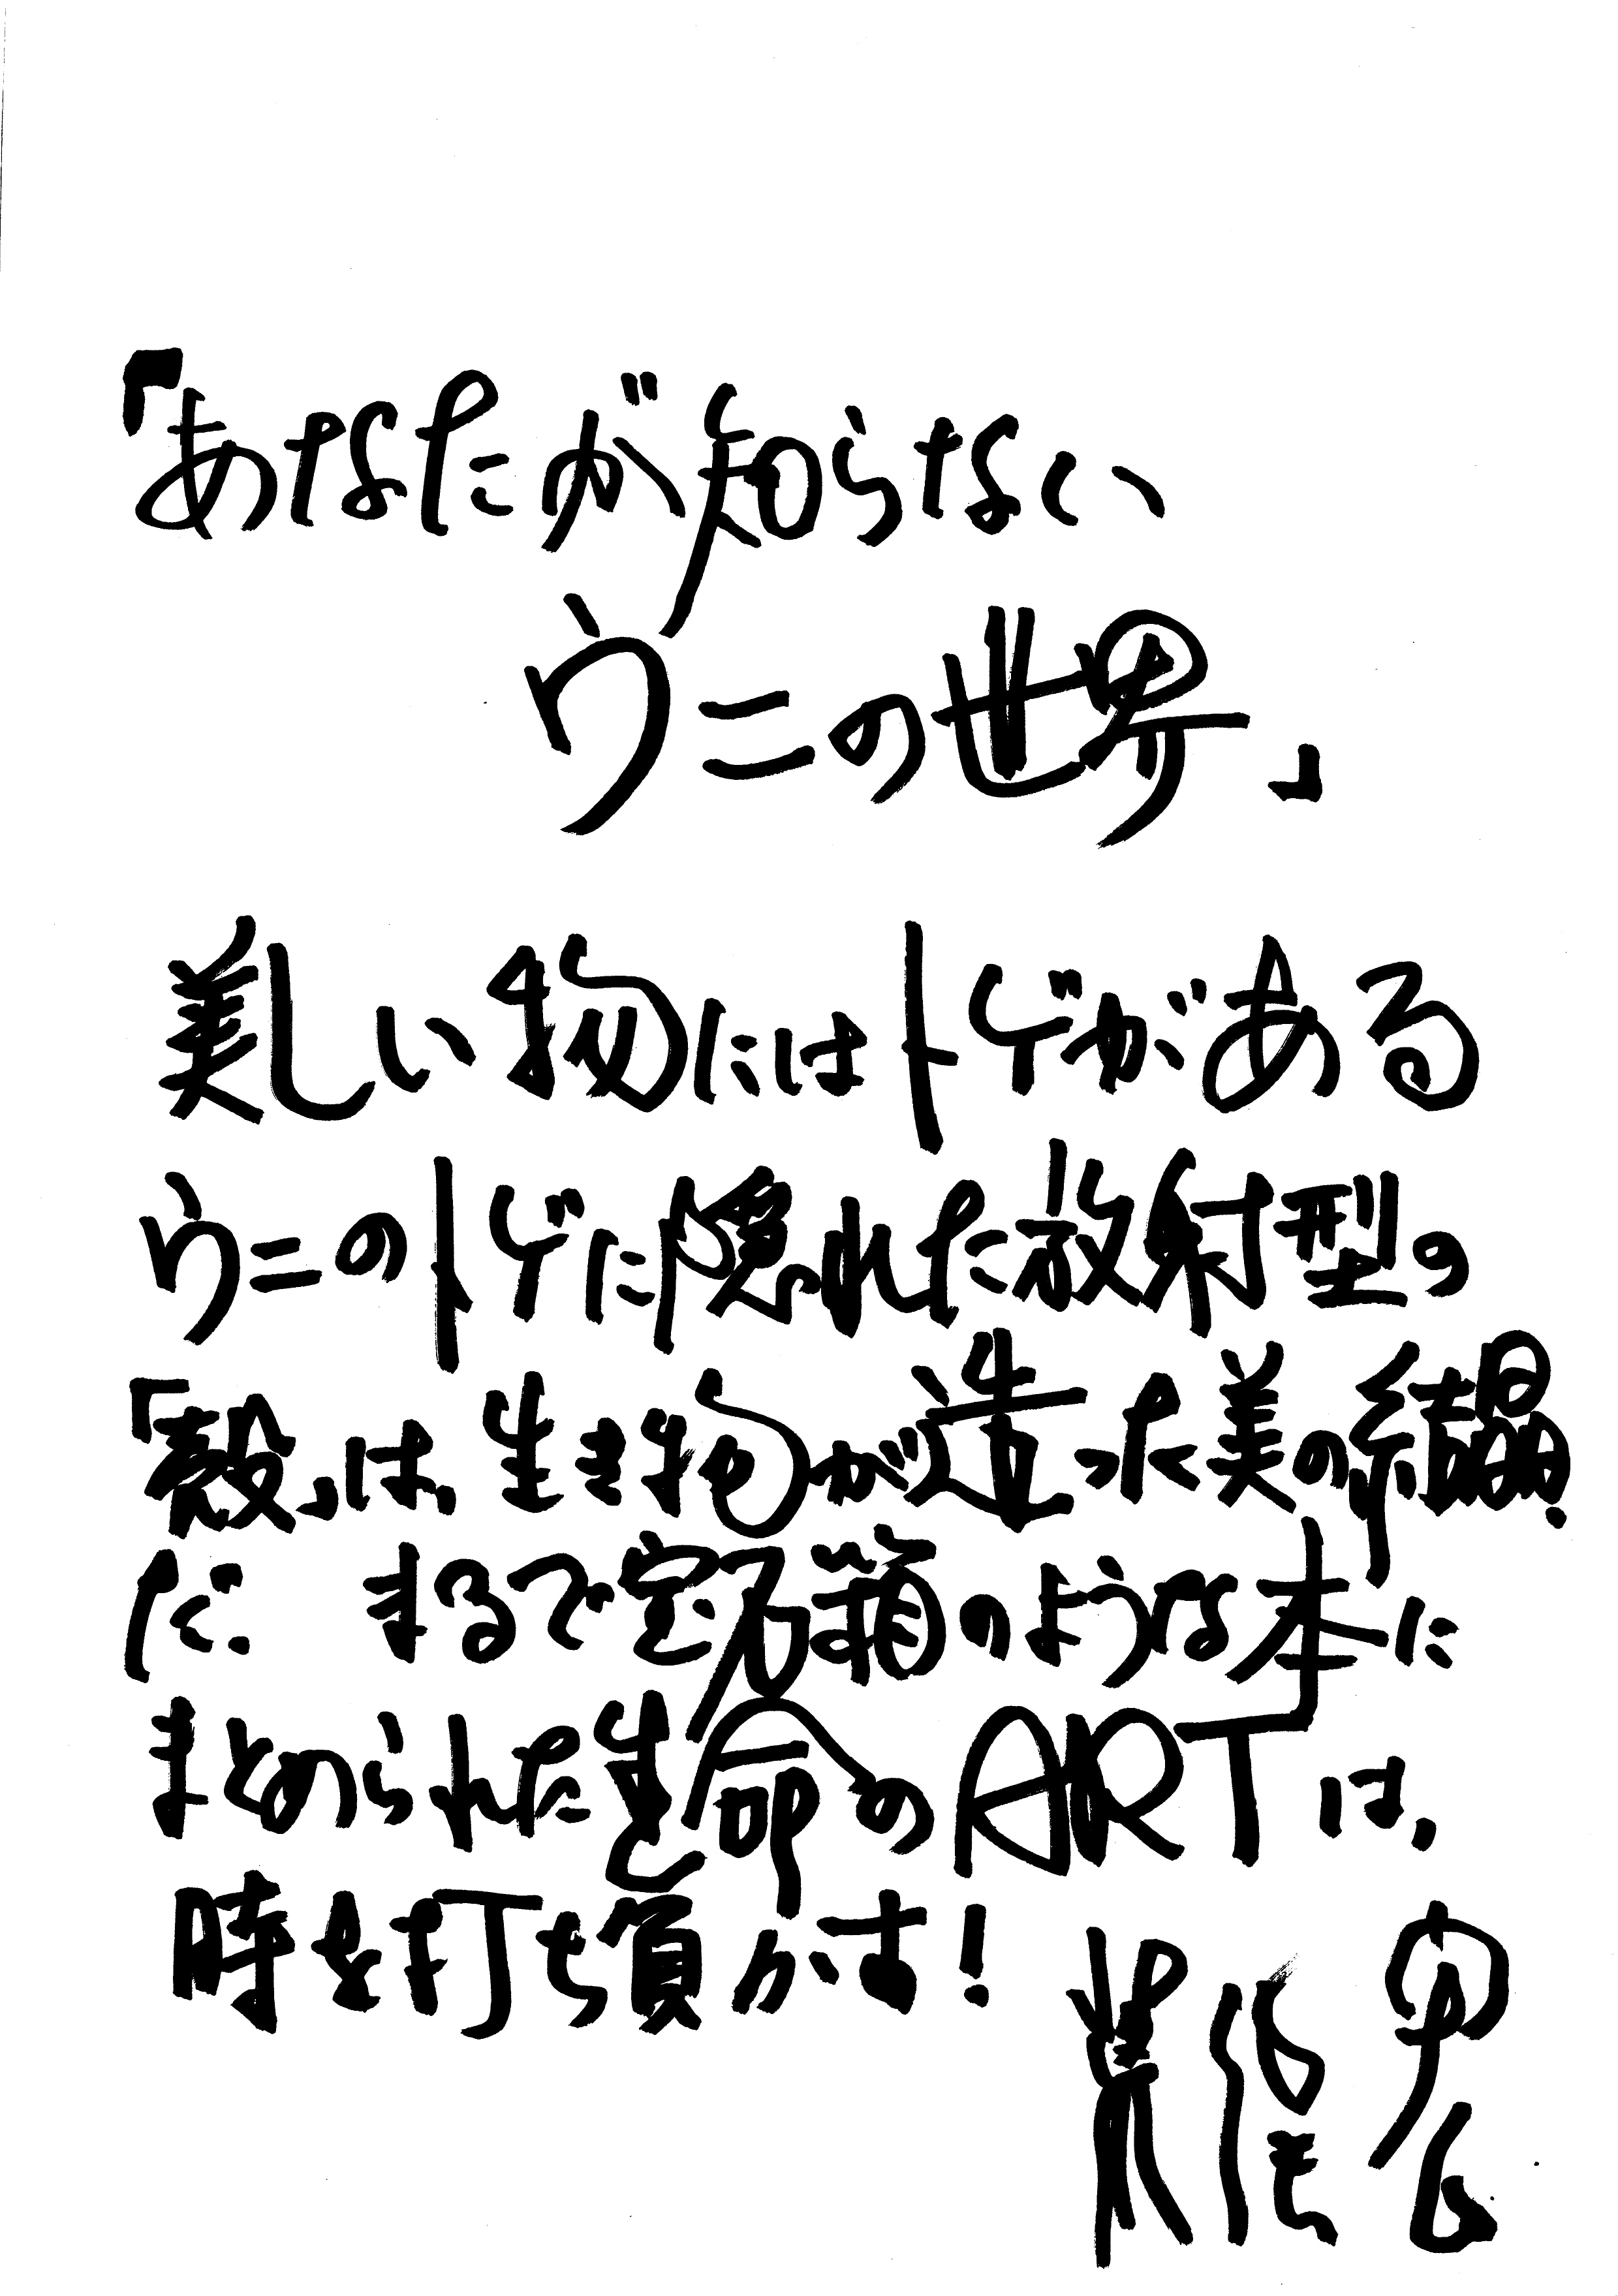 「あなたが知らない
ウニの世界」
美しい物にはトゲがある
ウニのトゲに隠れた放射型の
「殻」は、生き物が造った美の結晶
だ。まるで宝石箱のような本に
まとめられた生命のARTは、
時を打ち負かす!